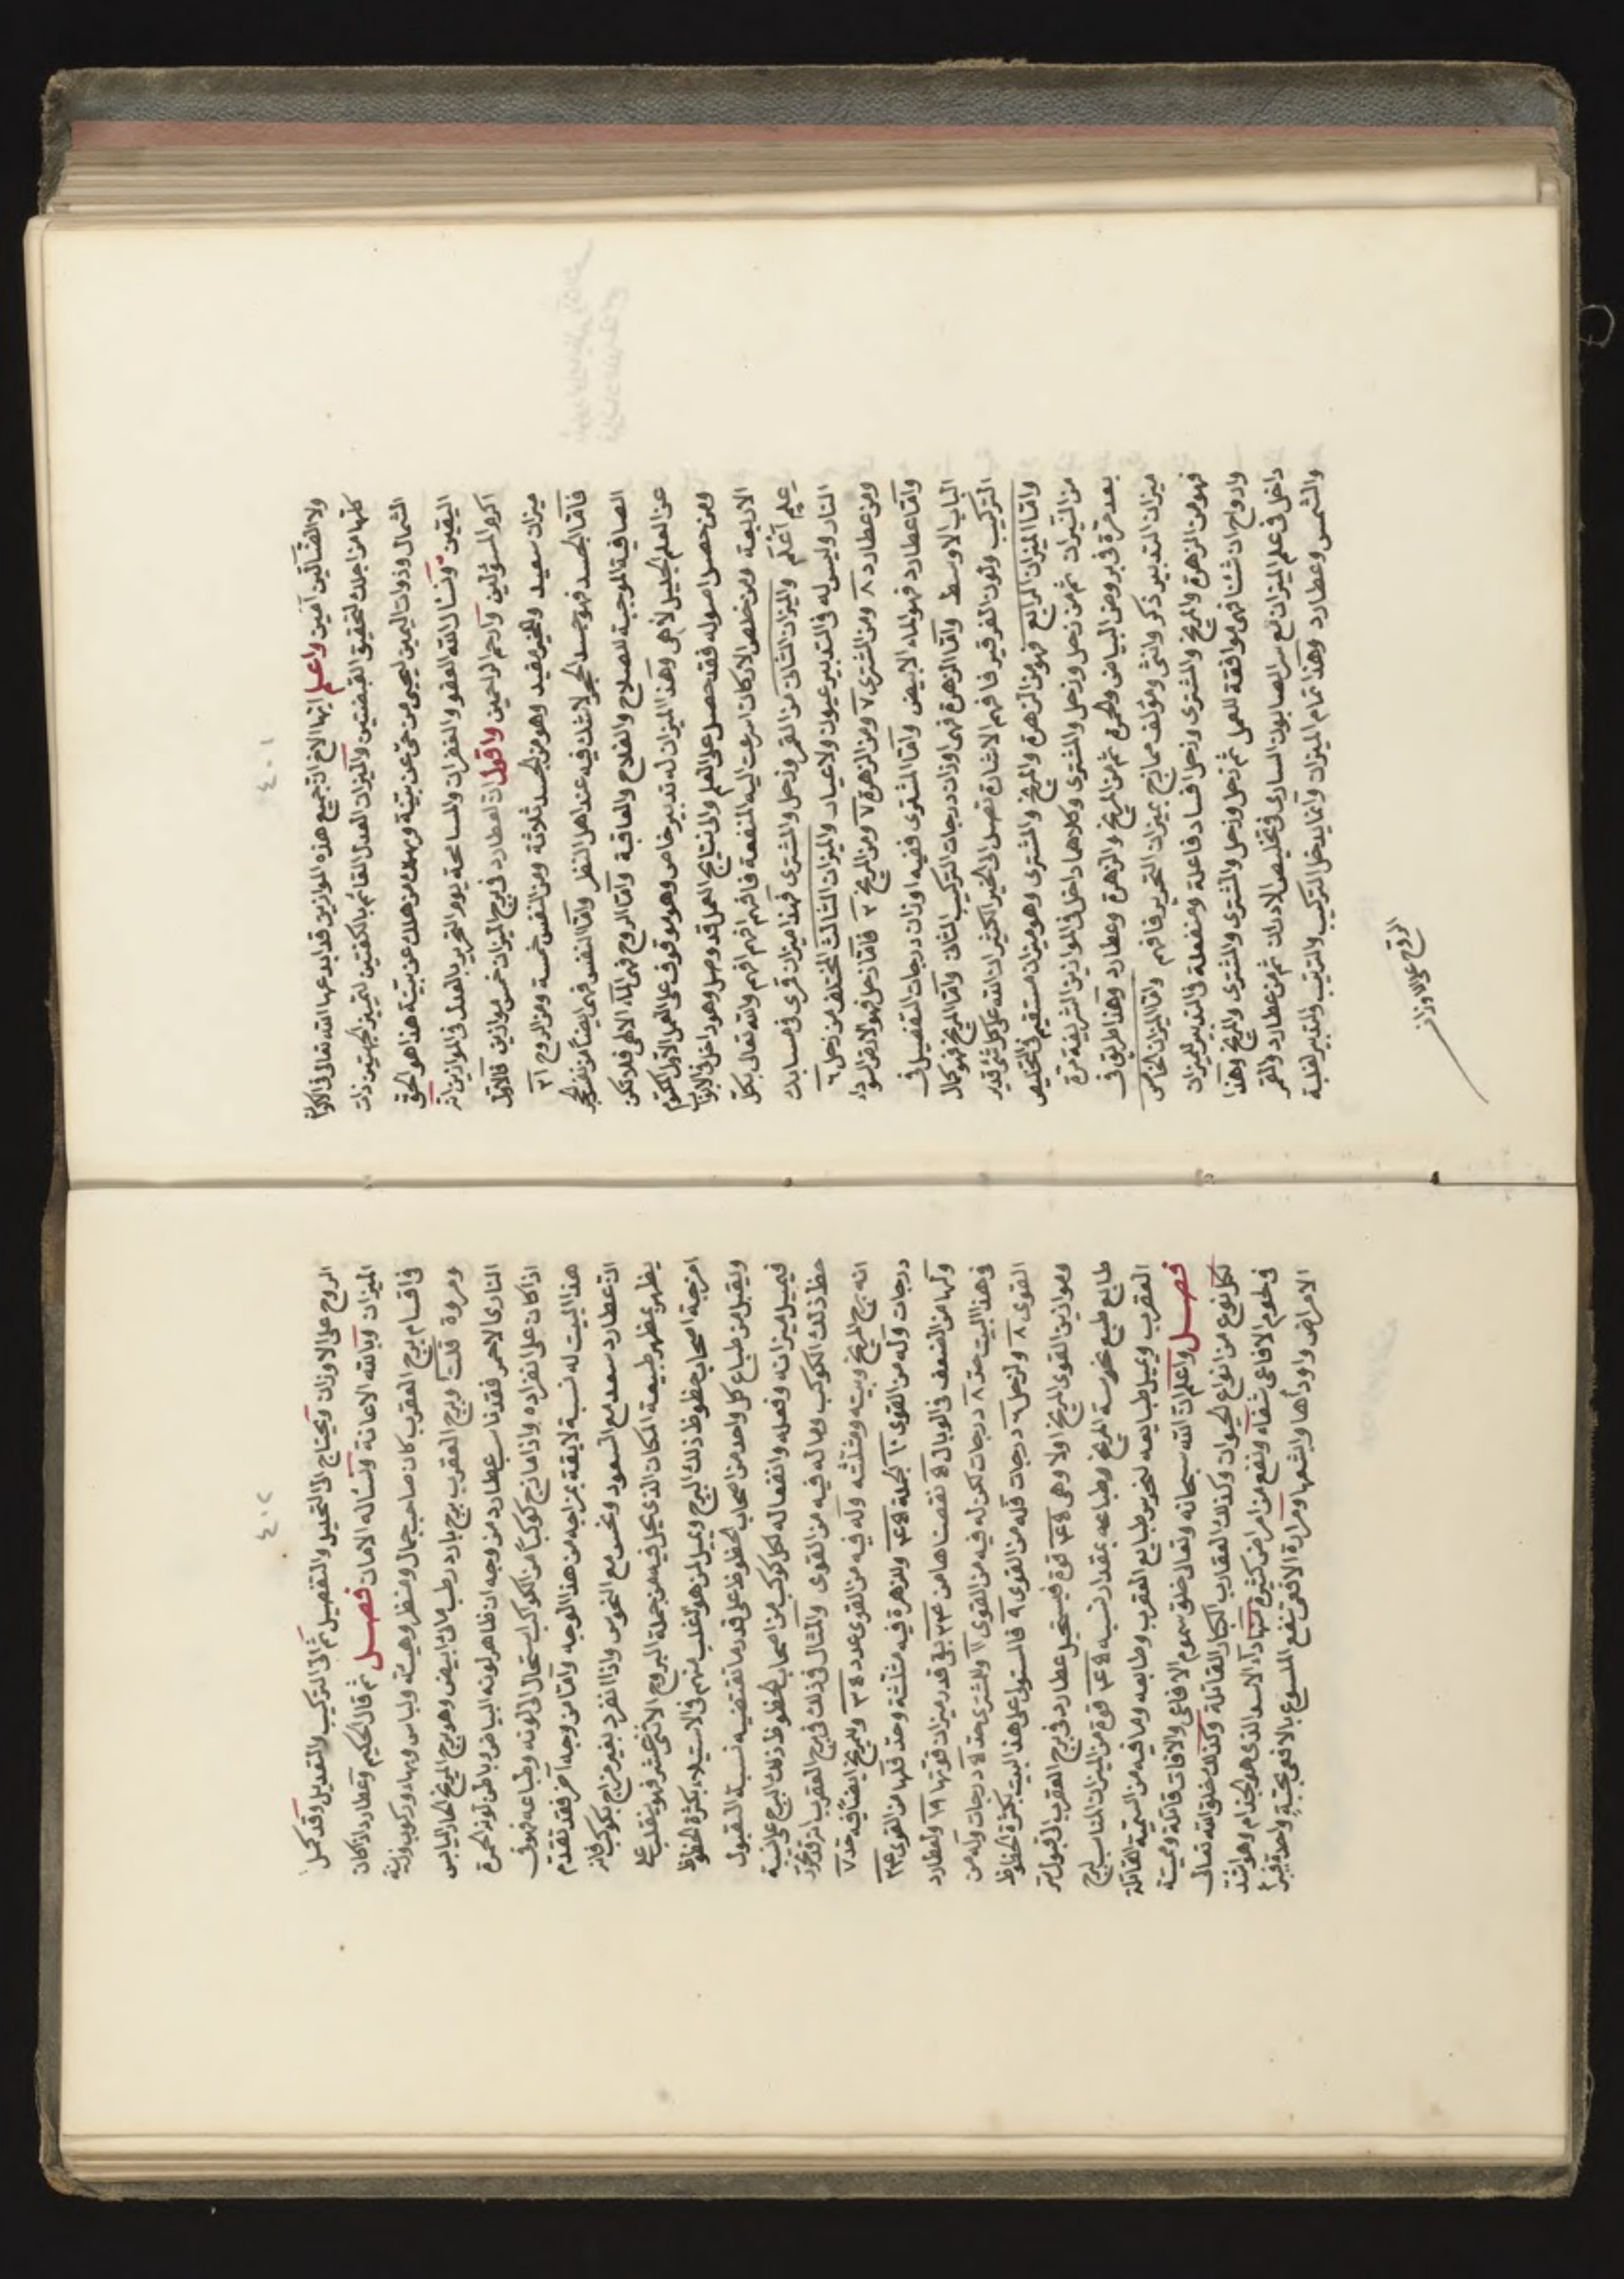 ٤٠١
ولا الضالين آمين واعلم ايها الاخ ان جميع هذه الموازين قد ابدعها الله تعالى في الاكوان
كلها من اجل تحقيق القبضتين والميزان العدل القائم بالكفتين لتمييز الجهتين ذات
الشمال وذوات اليمين ليحيى من حي عن بينة ويهلك من هلك عن بينة هذا هو الحق
اليقين ونسأل الله العفو والغفران والمسامحة يوم التحرير بالعدل في الموازين انه
اكرم المسؤلين وارحم الراحمين واقول ان لعطارد في برج الميزان خمس موازين فالاول
ميزان سعيد والخير مفيد وهو من الجسد ثلاثة ومن النفس خمسة ومن الروح ٢١
فاما الجسد فهو جسد الحجر لا شك فيه عند اهل النظر واما النفس فهي ايضا من نفس الحجر
الصافية الموجبة للصلاح والفلاح والعاقبة واما الروح فهي الماء الالهي فلا تكن
عن العلم الجليل لاهي وهذا الميزان له تدبير خاص وهو موقوف على العمل الاول المكتوم
ومن حصل اصوله فقد حصل على العلم والى نتايج العمل قد وصل وهو داخل في الابواب
الاربعة ومن خلص الاركان اسرعت اليه المنفعة فافهم افهم افهم والله تعالى بكل
علم اعلم والميزان الثاني من القمر وزحل والمشتري فهذا ميزان قرى في حسابك
النار وليس له في التدبير عيون ولا عيار والميزان الثالث المختلف من زحل ٦
ومن عطارد ٨ ومن المشتري ٧ ومن الزهرة ٧ ومن المريخ ٢ فاما زحل فهو الارض السوداء
واما عطارد فهو الماء الابيض واما المشتري ففيه اوزان درجات التفصيل في
الباب الاوسط واما الزهرة فهي اوزان درجات التركيب الثاني واما المريخ فهو كمال
التركيب ولون الفرفير فافهم الاشارة تصل الى الخير الكثير ان الله على كل شئ قدير
واما الميزان الرابع فهو من الزهرة والمريخ والمشتري وهو ميزان مستقيم في التخليص
من النيران ثم من زحل وزحل والمشتري وكلاهما داخل في الموازين الشريفة مرة
بعد مرة في بروص البياض والحمرة ثم من المريخ والزهرة وعطارد وهذا طريق في
ميزان التدبير ذكر وانثى ومؤلف ممازج بميزان التحرير فافهم واما الميزان الخامس
فهو من الزهرة والمريخ والمشتري وزحل اقساد فاعلة ومنفعلة في التدبير للميزان
وازواج ان شئنا فهي موافقة للعمل ثم زحل وزحل والمشتري والمشتري والمريخ وهذا
داخل في علم الميزان مع سر الصابون الساري في تخليص الادران ثم من عطارد والقمر
والشمس وعطارد وهذا تمام الميزان وانما يدخل التركيب والترتيب والتدبير لغلبة
الروح على الاوزان
٤٠٢
الروح على الاوزان ويحتاج الى التحليل والتفصيل ثم الى التركيب والتعديل وقد كمل
الميزان وبالله الاعانة ونسأله الامان فصل ثم قال الحكيم وعطارد اذا كان
في اقسام برج العقرب كان صاحب جمال ومنظر وهيئة ولباس وبهاء وركوب وزينة
ومروة قلت وبرج العقرب برج بارد رطب مائي ابيض وهو برج المريخ الحار اليابس
الناري الاحمر فقد ناسب عطارد من وجه ان ظاهر لونه البياض وباطن لونه الحمرة
اذا كان على انفراده واذا مازج كوكبا من الكواكب استحال الى لونه وطباعه فهو في
هذا البيت له نسبة لايقة بمزاجه من هذا الوجه واما من وجه آخر فقد تقدم
ان عطارد سعد مع السعود ونحس مع النحوس واذا انفرد بغير مزاج بكوكب فانه
يظهر بمظهر طبيعة المكان الذي يحل فيه من جملة البروج الاثني عشر فهو ينقلب على
امزجة اصحاب حظوظ ذلك البرج ويميل لمن هو اغلب منهم في الاستيلاء بكثرة الحظوظ
ويقبل من طباع كل واحد من اصحاب الحظوظ على قدر ما تقتضيه نسبة القبول
فيميل ميزانه وفعله وانفعاله لكل كوكب من اصحاب الحظوظ ذلك البرج على نسبة
حظ ذلك الكوكب وما له فيه من القوى والمثال في ذلك في برج العقرب انه قد تحرر
انه برج المريخ وبيته ومثلثه وله فيه من القوى عدد ٣٥ وللمريخ ايضا فيه حد ٧
درجات وله من القوى ١٠ الجملة ٤٥ وللزهرة فيه مثلثة وحد فلها من القوى ٢٤
ولها من الضعف في الوبال ٥ نقصناها من ٢٤ بقى قدر ميزان قوتها ١٩ ولعطارد
في هذا البيت حد ٨ درجات لكن له فيه من القوى ١١ والمشتري حد ٥ درجات وله من
القوى ٨ ولزحل ٦ درجات فله من القوى ٩ فالمستولي على هذا البيت بكثرة الحظوظ
وموازين القوى المريخ اولا وهي ٤٥ قوة فيستحيل عطارد في برج العقرب الى قبول اثر
طابع طبع نحوسة المريخ وطباعه بمقدار نسبة ٤٥ قوة من الميزان المناسب لبرج
العقرب ويميل طبايعه لنحوس طبايع العقرب وطابعه وما فيه من السمية القاتلة
فصل واعلم ان الله سبحانه وتعالى خلق سموم الافاعي والافات قاتلة ومميتة
لكل نوع من انواع الحيوان وكذلك العقارب الكبار القاتلة وكذلك خلق الله تعالى
في لحوم الافاعي شفاء ونفع من امراض كثيرة منها داء الاسد الذي هو الجذام وهو اشد
الامراض وادوأها وابشعها ومرارة الافعى تنفع الملسوع بالافعى بحبة واحدة فيبرأ